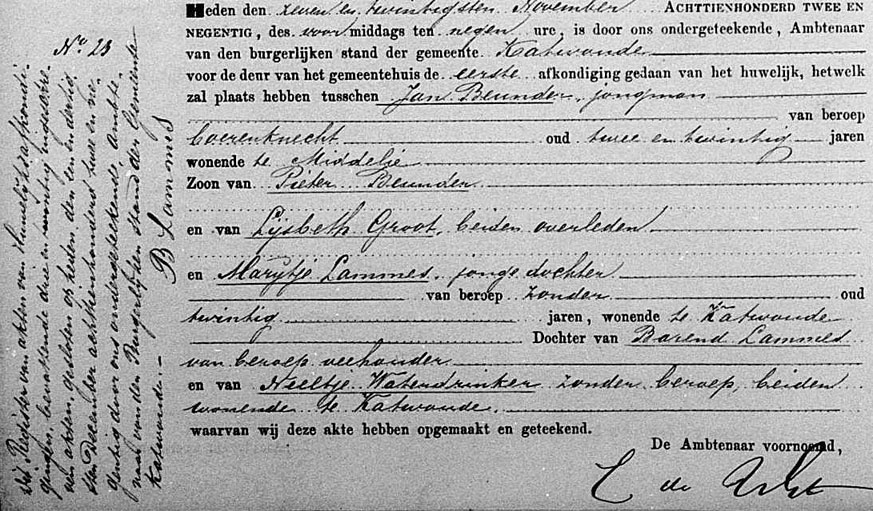 Heden den zeven en twintigsten November ACHTTIENHONDERD TWEE EN
NEGENTIG, des voor middags ten negen ure, is door ons ondergeteekende, Ambtenaar
van den burgerlijken stand der gemeente Katwoude
voor de deur van het gemeentehuis de eerste afkondiging gedaan van het huwelijk, hetwelk
zal plaats hebben tusschen Jan Beunder, jongman
van beroep
boerenknecht oud twee en twintig jaren
wonende te Middelie
Zoon van Pieter Beunder
en van Lijsbeth Groot, beiden overleden
en Marijtje Lammes, jonge dochter
van beroep zonder oud
twintig jaren, wonende te Katwoude
Dochter van Barend Lammes
van beroep veehouder
en van Neeltje Waterdrinker zonder beroep, beiden
wonende te Katwoude.
waarvan wij deze akte hebben opgemaakt en geteekend.
De Ambtenaar voornoemd,
C de
No. 23
Dit Register van akten van Huwelijksafkondi-
gingen, bevattende drie en twintig ingeschre-
ven akten, gesloten op heden, den een en dertig-
sten December achttienhonderd twee en ne-
gentig door ons ondergeteekende, Ambte-
naar van den Burgerlijken stand der Gemeente
Katwoude.-
B Lammes